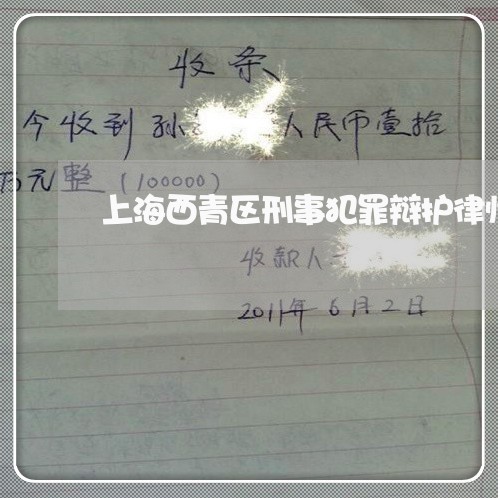 收条
今收到孙 人民币壹拾
万元整(100000)
上海西青区刑事犯罪辩护律
收款人
2011年6月2日